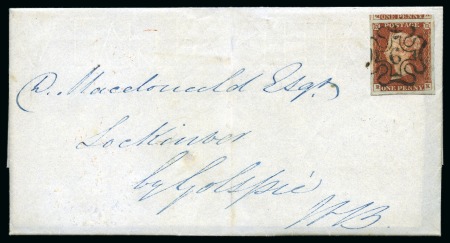 D. Macdonald Esqr
Lochinver
by Golspie
N.B.
ONE PENNY
POSTAGE
ONE PENNY